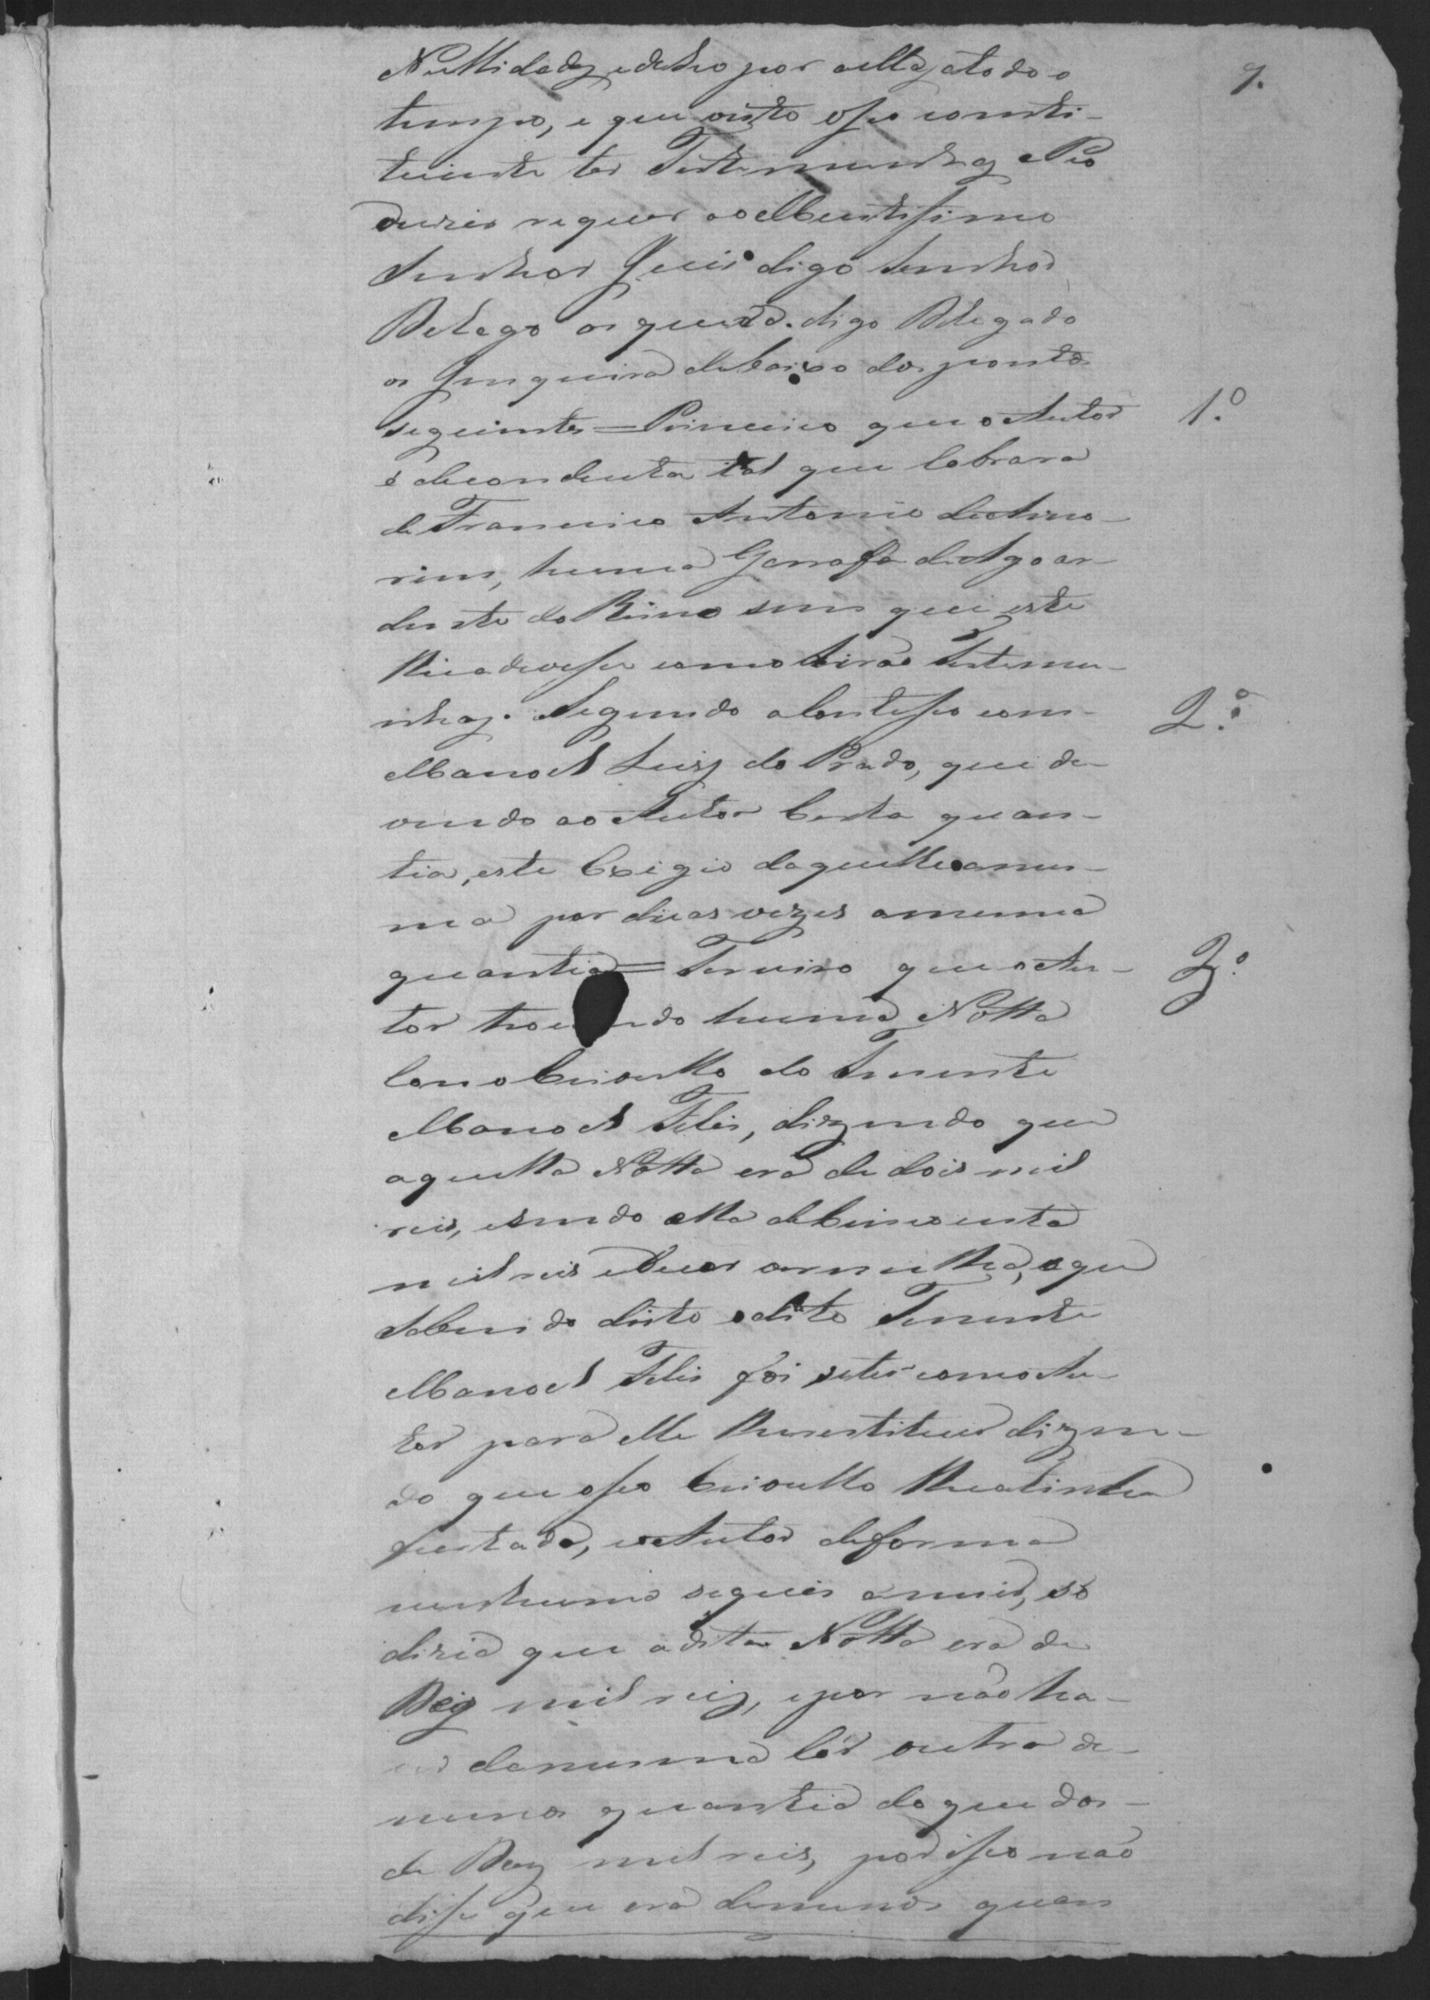 9.
Nullidade, e dello por ella, a todo o
tempo, e que visto esse consti-
tuinte ter Testemunhas e Pro
duzir requer ao Meritissimo
Senhor Juis digo Senhor
Delego os queira. digo Delegado
os Inqueira debaixo dos pontos
seguintes = Primeiro que o Autor 1.º
é de conducta tal que cobrara
de Francisco Antonio de Amo-
rim, huma Garrafa de Agoar-
dente do Reino sem que este
lhe a devesse como dirão Testemu-
nhas. Segundo Contesso com 2.º
Manoel Luiz do Prado, que de-
vendo ao Autor Certa quan-
tia, este Exigio daquelle a mes-
ma por duas vezes a mesma
quantia = Terceiro que o Au- 3.º
tor trocando huma Notta
Com o Crioullo do Tenente
Manoel Felis, dizendo que
aquella Notta era de dois mil
reis, e sendo ella de Cincoenta
mil reis e que
Sabendo disto o dito Tenente
Manoel Felis foi ter com o Au-
tor para elle lhe restituir dizen-
do que esse Crioullo lhe a tinha
furtado, e o Autor de forma
nenhuma o quis annuir, só
dizia que a dita Notta era de
Dez mil reis, e por não ha-
ver da mesma Côr outra de
menos quantia do que dos
de Dez mil reis, por isso não
disse que era de menos quan